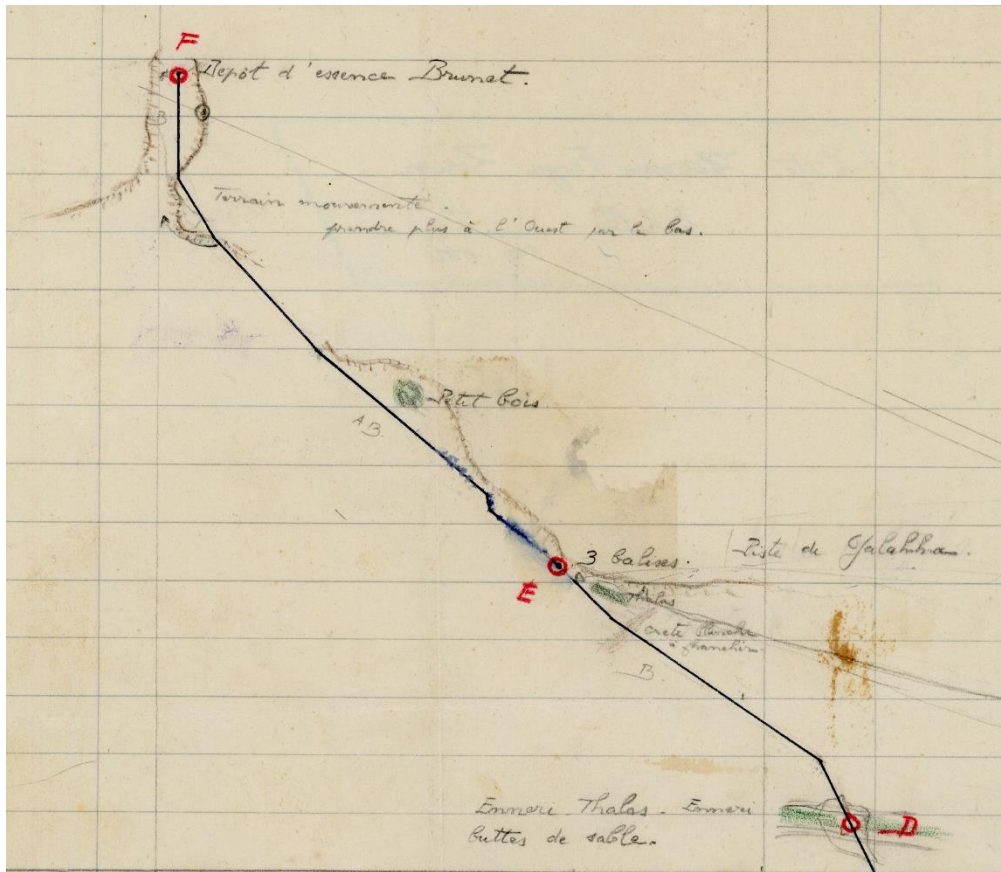 F
Depôt d'essence Brunet.
B
Terrain mouvementé.
prendre plus à l'Ouest par le bas.
Petit bois.
AB
3 balises.
Piste de
E
Thalas
crete
à franchir.
B
Enneri Thalas - Enneri
D
buttes de sable.